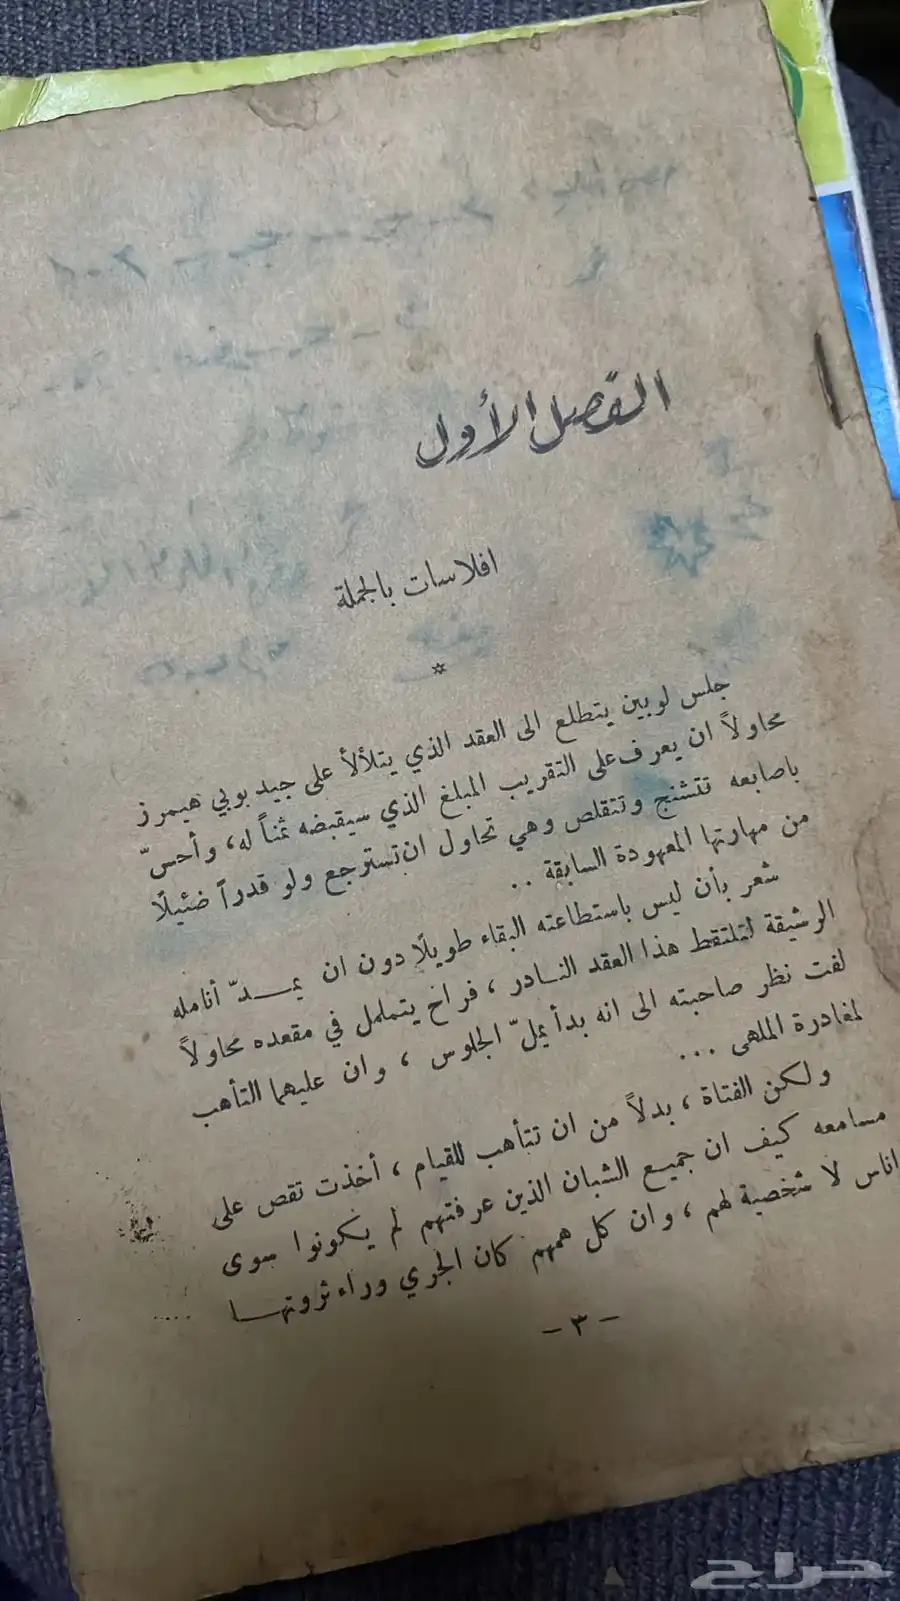 الفصل الأول
افلاسات بالجملة
جلس لوبين يتطلع الى العقد الذي يتلألأ على جيد بوبي هيمرز
محاولاً ان يعرف على التقريب المبلغ الذي سيقبضه ثمناً له، وأحسّ
باصابعه تتشنج وتتقلص وهي تحاول ان تسترجع ولو قدراً ضئيلاً
من مهارتها المعهودة السابقة ..
شعر بأن ليس باستطاعته البقاء طويلاً دون ان يمــدّ أنامله
الرشيقة لتلتقط هذا العقد النادر، فراح يتململ في مقعده محاولاً
لفت نظر صاحبته الى انه بدأ يملّ الجلوس، وان عليهما التأهب
لمغادرة الملهى ...
ولكن الفتاة، بدلاً من ان تتأهب للقيام، أخذت تقص على
مسامعه كيف ان جميع الشبان الذين عرفتهم لم يكونوا سوى
اناس لا شخصية لهم، وان كل همهم كان الجري وراء ثروتهــا
- ٣ -
حراج